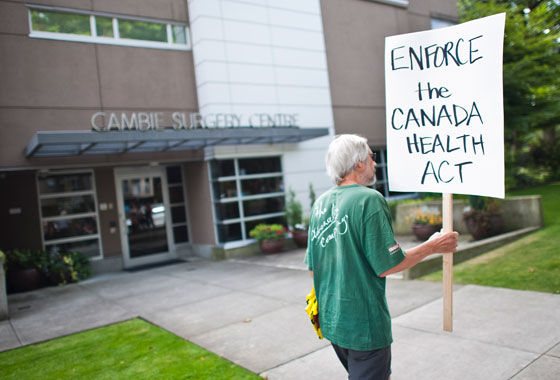 CAMBIE SURGERY CENTRE
ENFORCE
the
CANADA
HEALTH
ACT
The